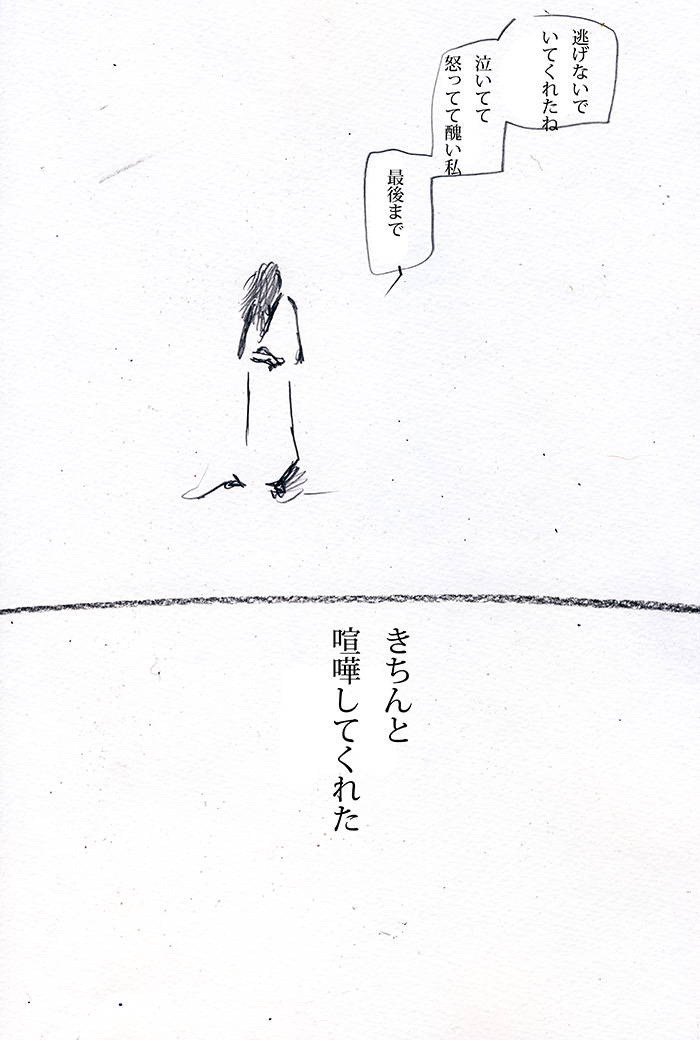 逃げないで
いてくれたね
泣いてて
怒ってて醜い私
最後まで
きちんと
喧嘩してくれた